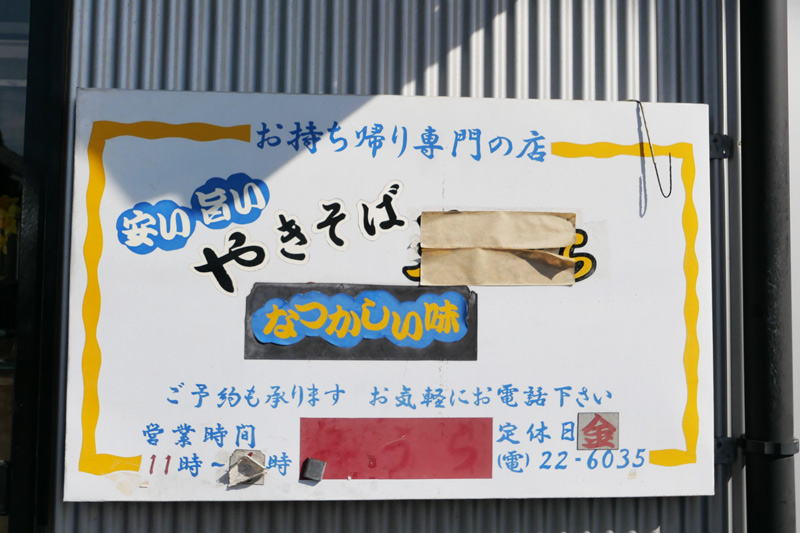 お持ち帰り専門の店
安い 旨い
やきそば
なつかしい味
ご予約も承ります お気軽にお電話下さい
営業時間 定休日 金
11時~ 時 (電) 22-6035